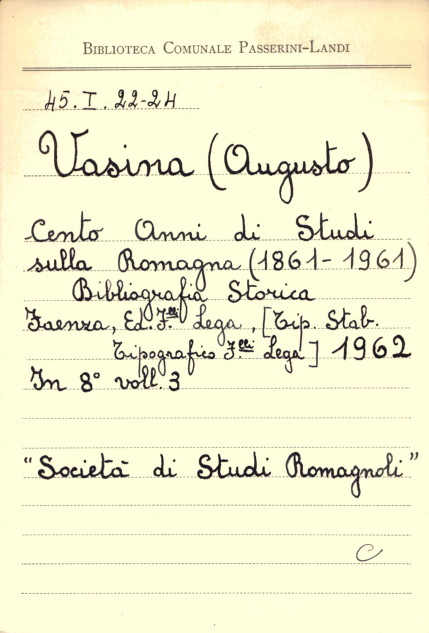 BIBLIOTECA COMUNALE PASSERINI-LANDI
45. I. 22-24
Vasina (Augusto)
Cento Anni di Studi
sulla Romagna (1861-1961)
Bibliografia Storica
Faenza, Ed. F.lli Lega, [Tip. Stab.
Tipografico F.lli Lega] 1962
In 8° voll. 3
"Società di Studi Romagnoli"
C